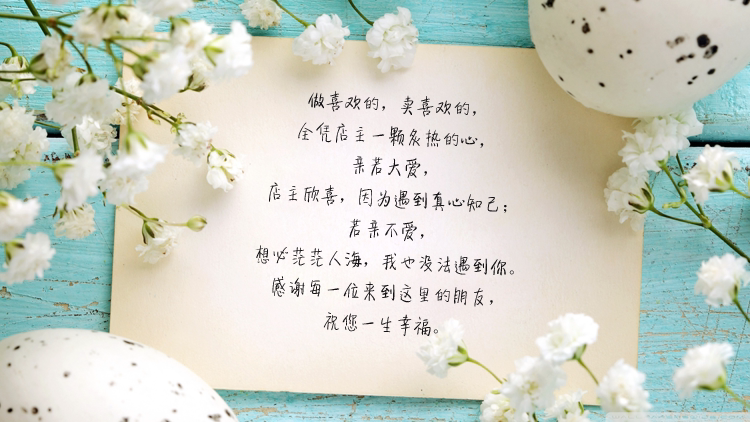 做喜欢的，卖喜欢的，
全凭店主一颗炙热的心，
亲若大爱，
店主欣喜，因为遇到真心知己；
若亲不爱，
想必茫茫人海，我也没法遇到你。
感谢每一位来到这里的朋友，
祝您一生幸福。